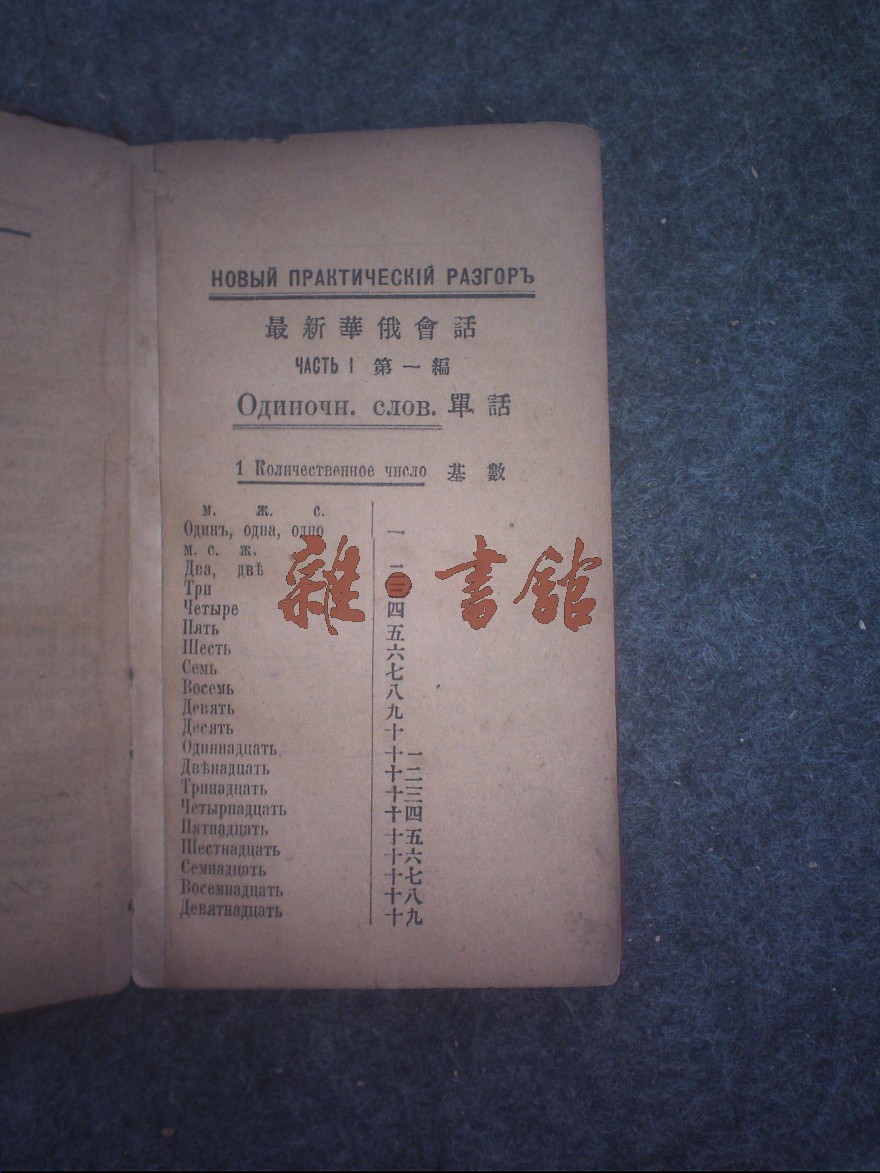 НОВЫЙ ПРАКТИЧЕСКІЙ РАЗГОРЪ
最新華俄會話
ЧАСТЬ I 第一編
Одиночн. слов. 單話
1 Количественное число 基數
м. ж. с.
Одинъ, одна, одно 一
м. с. ж.
Два, двѣ 二
Три 三
Четыре 四
Пять 五
Шесть 六
Семь 七
Восемь 八
Девять 九
Десять 十
Одиннадцать 十一
Двѣнадцать 十二
Тринадцать 十三
Четырнадцать 十四
Пятнадцать 十五
Шестнадцать 十六
Семнадцать 十七
Восемнадцать 十八
Девятнадцать 十九
雜·書館